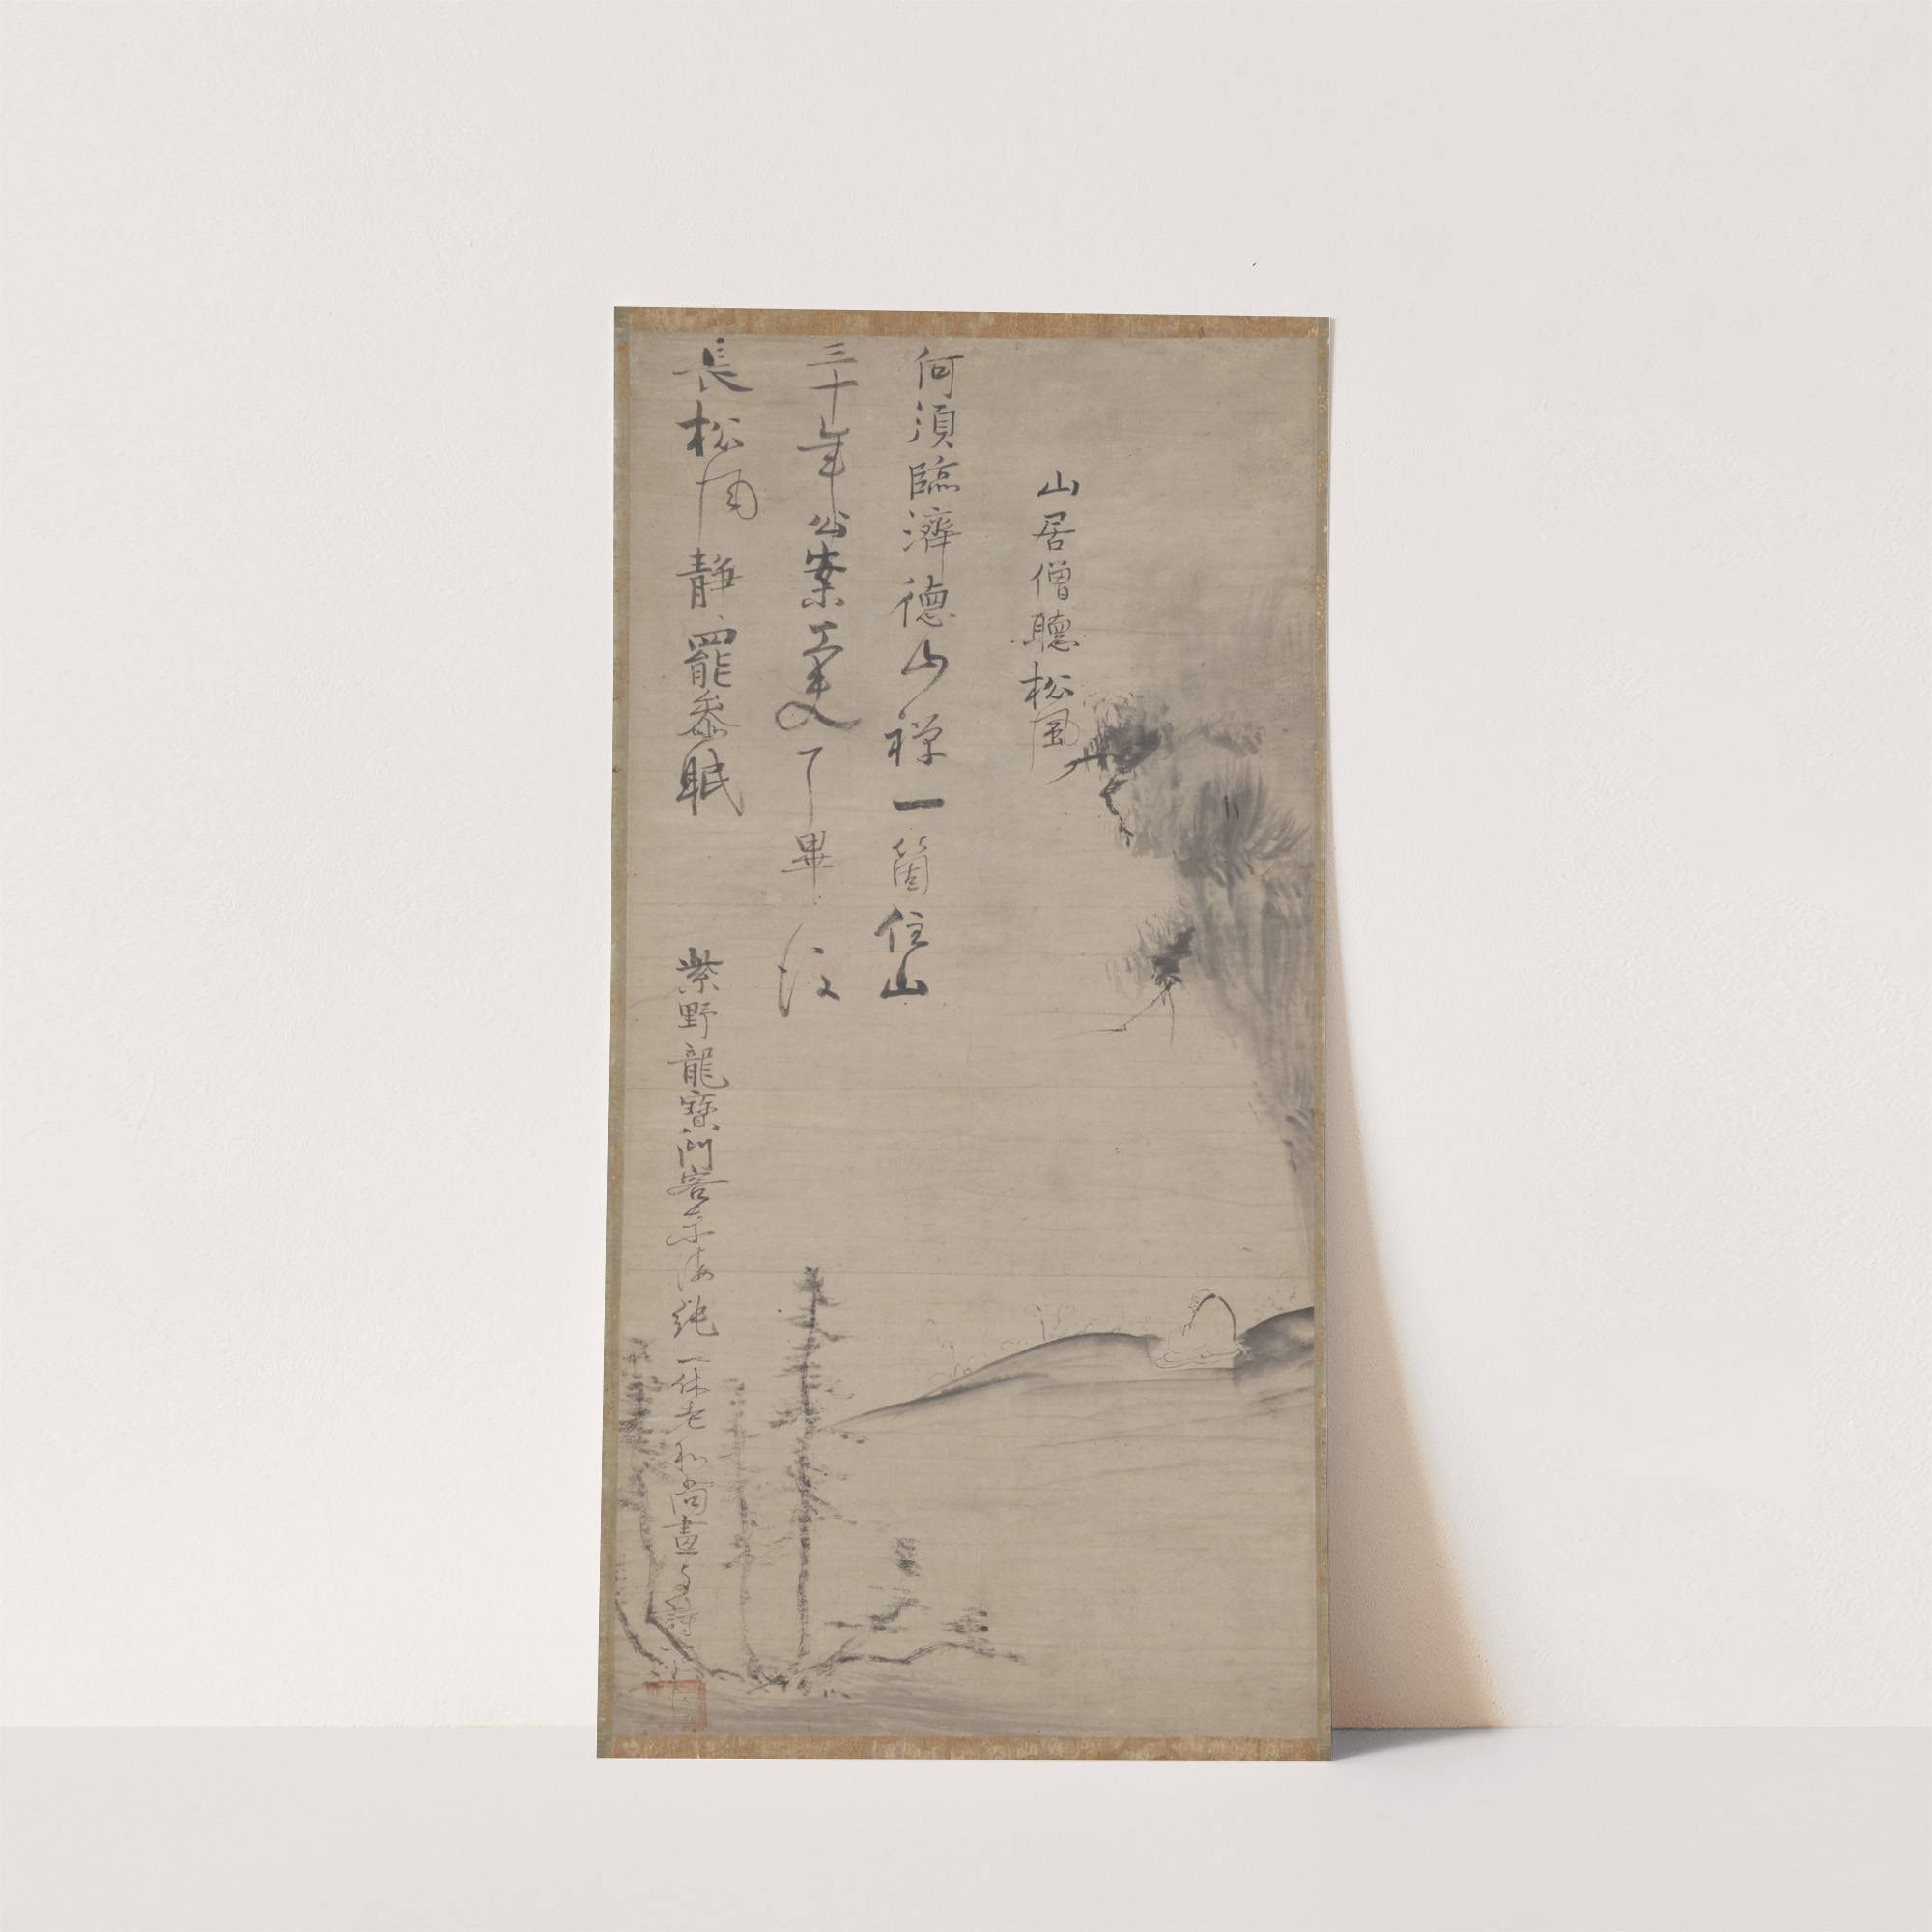 山居僧聴松風
何須臨濟德山禅一箇住山
三十年公案了畢
長松風静罷参眠
紫野龍寶門客東海純一休老和尚畫